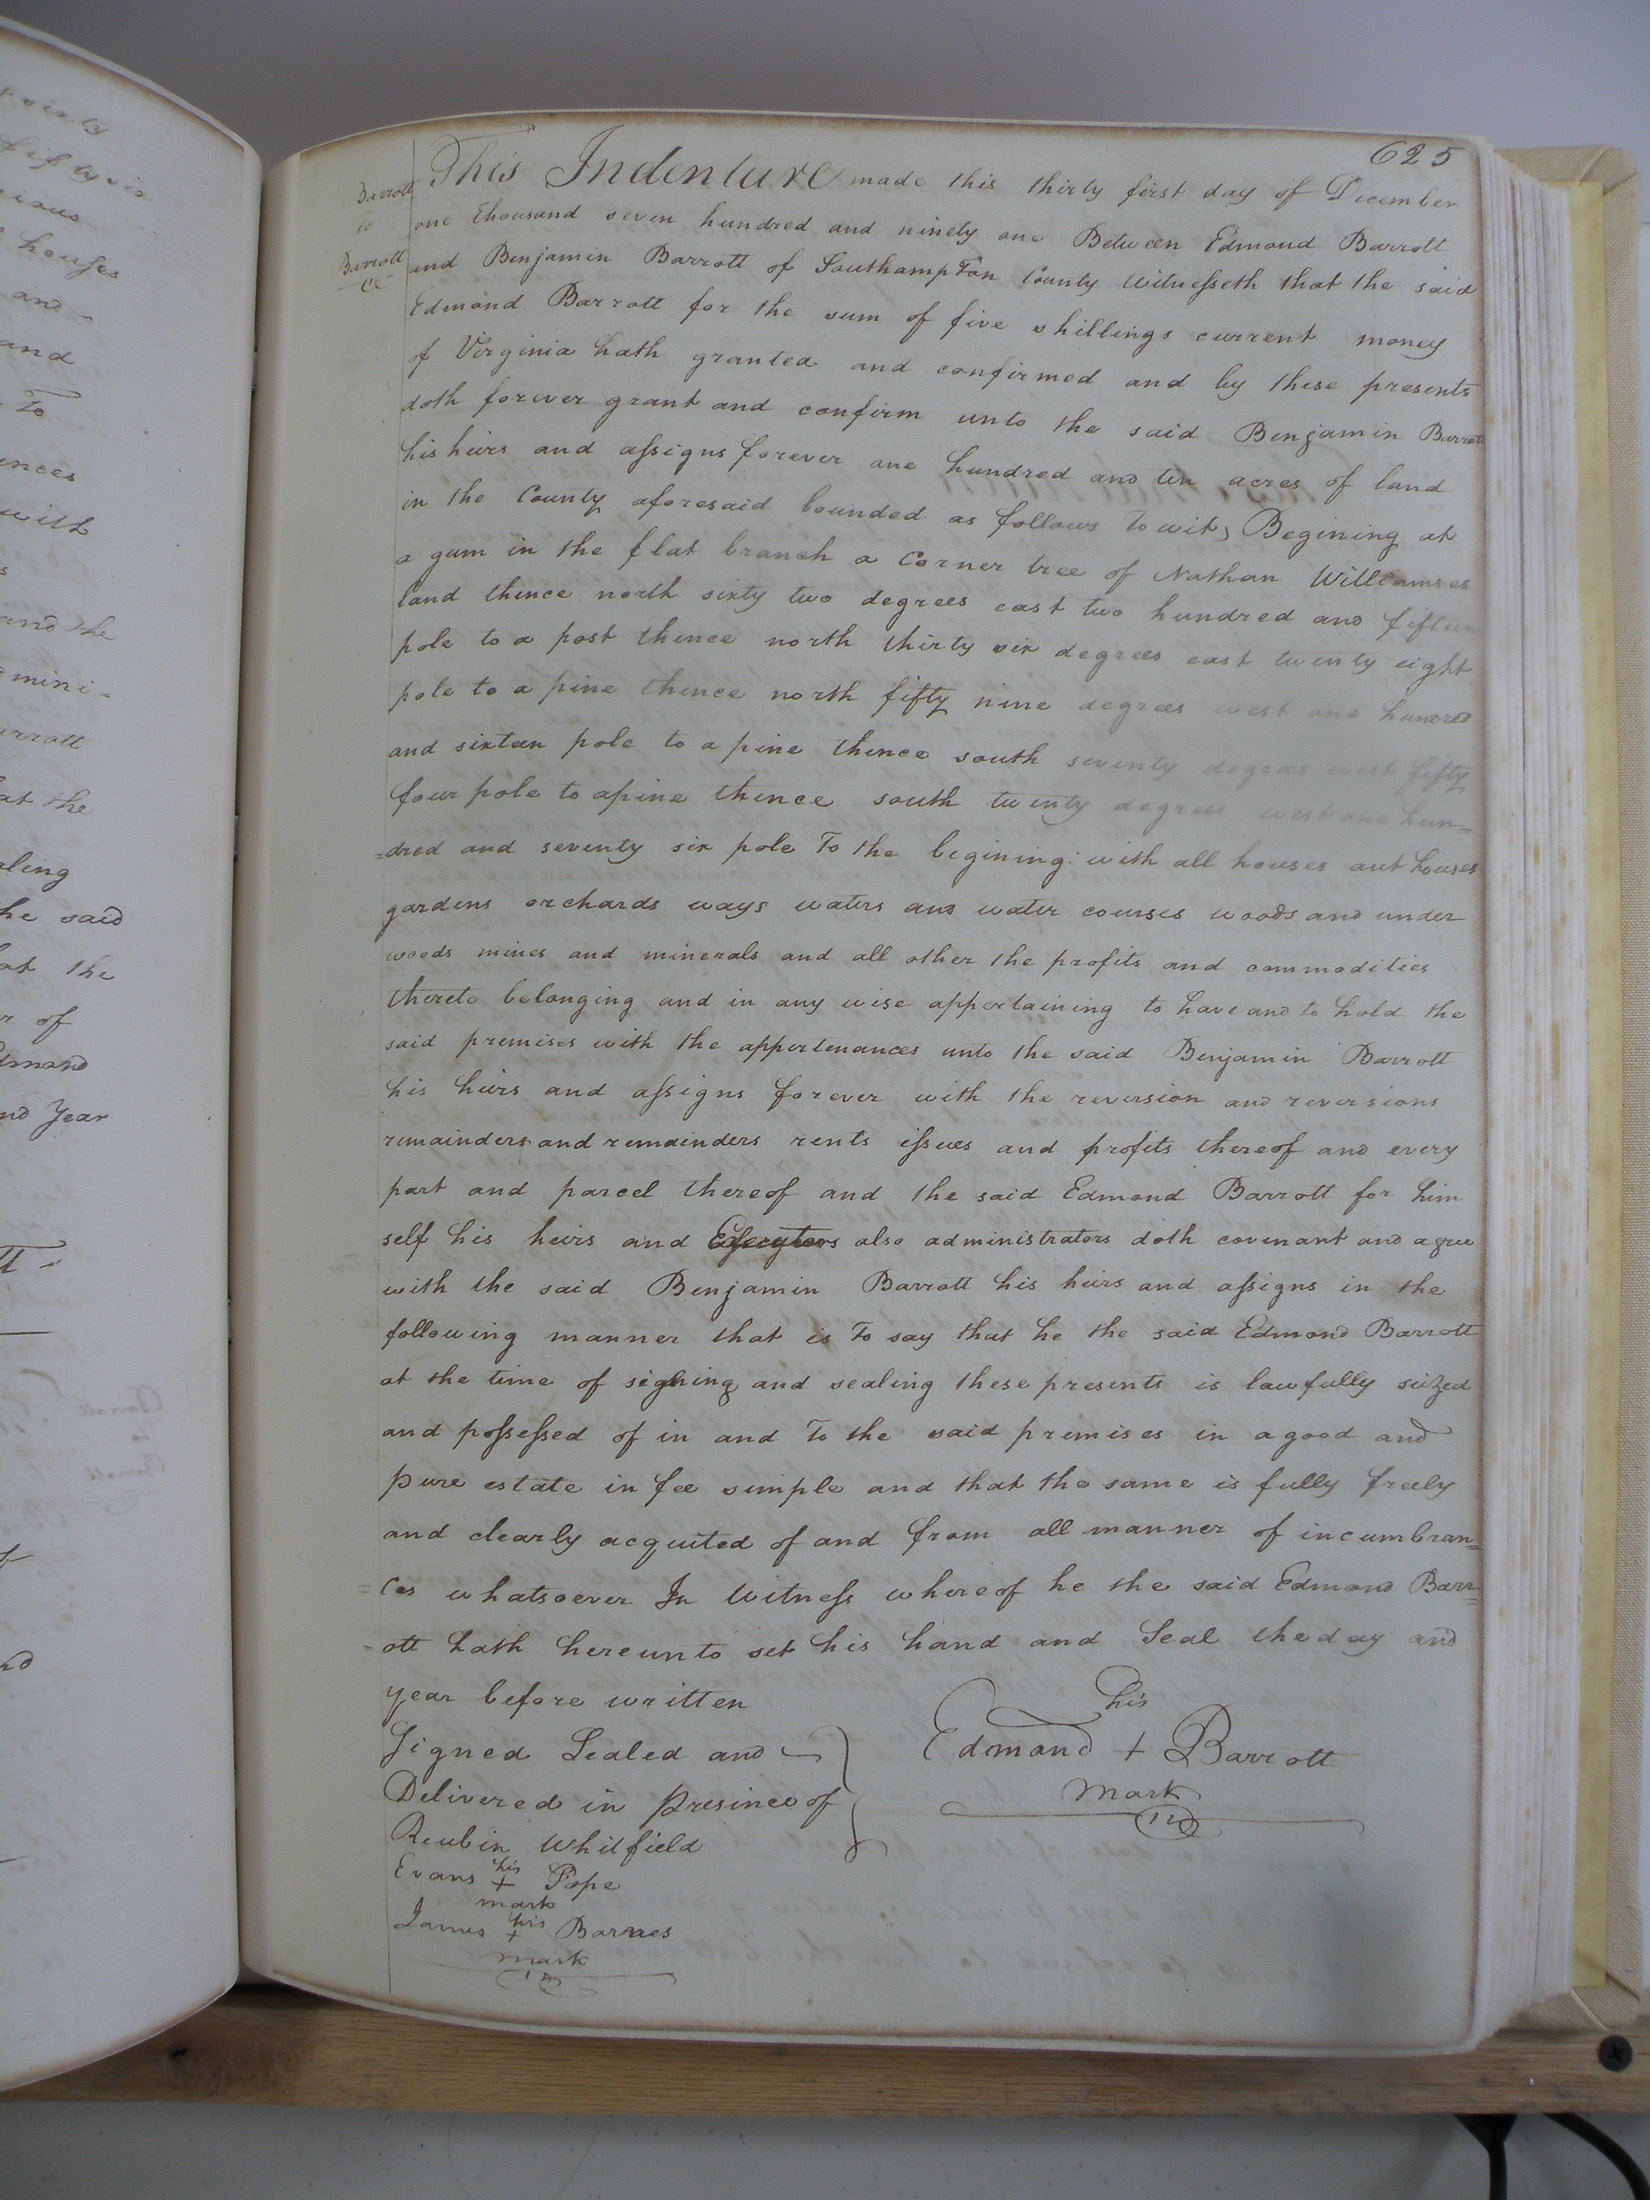 625
Barrott
to
Barrott
This Indenture made this thirty first day of December
one thousand seven hundred and ninety one Between Edmond Barrott
and Benjamin Barrott of Southampton County Witnesseth that the said
Edmond Barrott for the sum of five shillings current money
of Virginia hath granted and confirmed and by these presents
doth forever grant and confirm unto the said Benjamin Barrott
his heirs and assigns forever one hundred and ten acres of land
in the County aforesaid bounded as follows To wit, Begining at
a gum in the flat branch a Corner tree of Nathan Williamses
land thence north sixty two degrees east two hundred and fifteen
pole to a post thence north thirty six degrees east twenty eight
pole to a pine thence north fifty nine degrees west one hundred
and sixteen pole to a pine thence south seventy degrees west fifty
four pole to a pine thence south twenty degrees west one hun=
=dred and seventy six pole To the begining with all houses out houses
gardens orchards ways waters and water courses woods and under
woods mines and minerals and all other the profits and commodities
thereto belonging and in any wise appertaining to have and to hold the
said premises with the appertenances unto the said Benjamin Barrott
his heirs and assigns forever with the reversion and reversions
remainders and remainders rents issues and profits thereof and every
part and parcel thereof and the said Edmond Barrott for him
self his heirs and also administrators doth covenant and agree
with the said Benjamin Barrott his heirs and assigns in the
following manner that is To say that he the said Edmond Barrott
at the time of signing and sealing these presents is lawfully seized
and possessed of in and To the said premises in a good and
pure estate in fee simple and that the same is fully freely
and clearly acquited of and from all manner of incumbran=
=ces whatsoever In Witness whereof he the said Edmond Barr=
-ott hath hereunto set his hand and Seal the day and
year before written
Signed Sealed and
Delivered in presince of
Reubin Whitfield
Evans his + Pope
mark
James his + Barnes
mark
his
Edmond + Barrott
mark
and the
mini-
arrott
at the
aling
he said
at the
r of
dmond
nd Year
houses
and -
and
To
ances
with